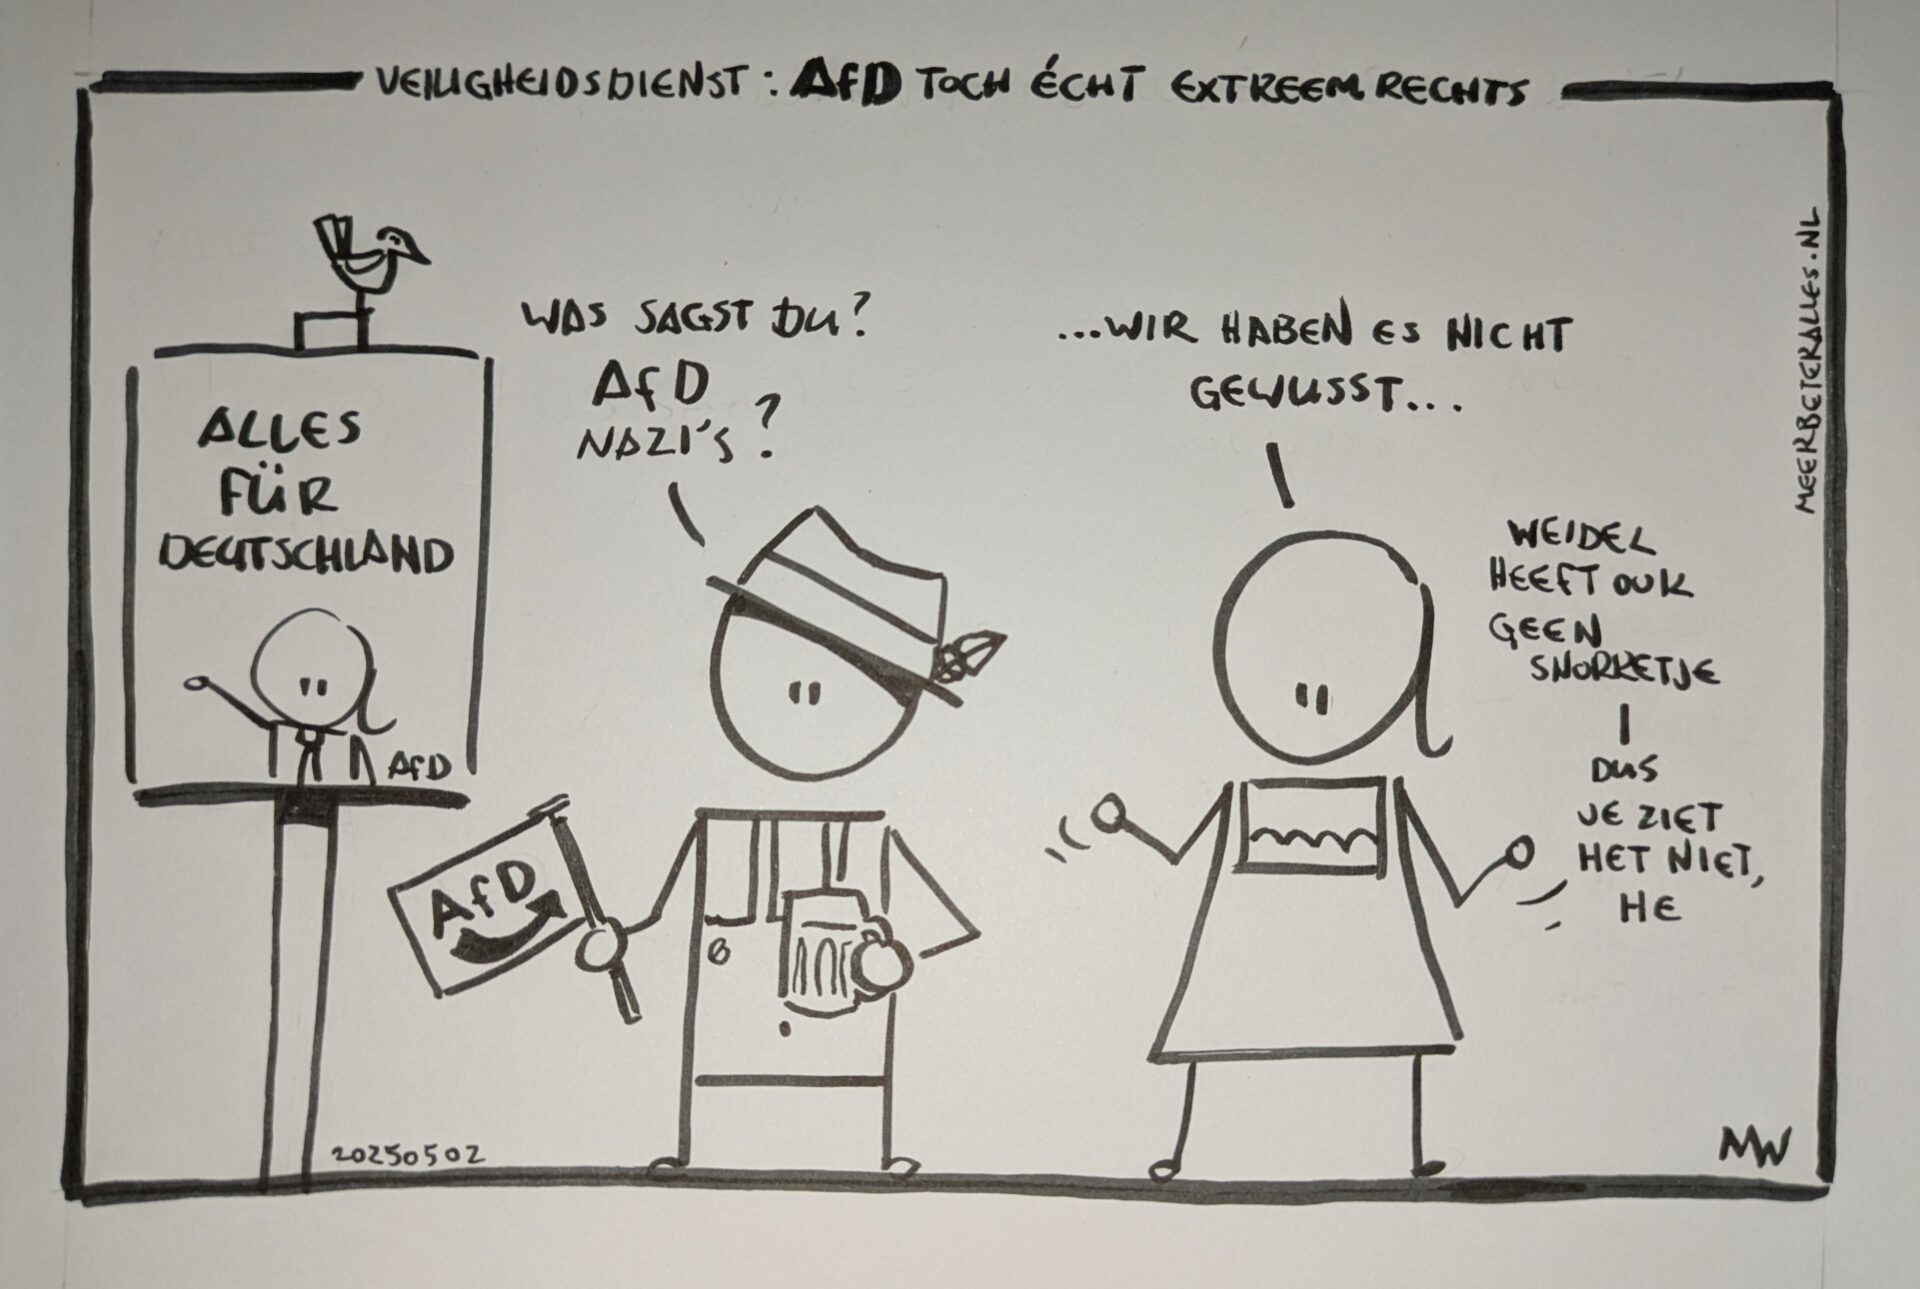 VEILIGHEIDSDIENST: AfD TOCH ÉCHT EXTREEM RECHTS
ALLES
FÜR
DEUTSCHLAND
AfD
WAS SAGST DU?
AfD
NAZI'S?
AfD
...WIR HABEN ES NICHT
GEWUSST...
WEIDEL
HEEFT OOK
GEEN
SNORRETJE
DUS
JE ZIET
HET NIET,
HE
MEERBETERALLES.NL
20250502
MW